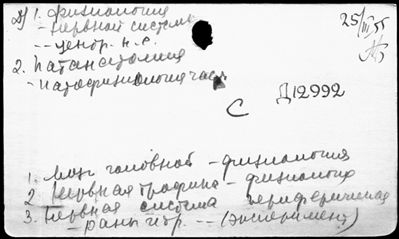 Д) 1. Физиология 25/III 55
- нервной системы
-- центр. н. с.
2. Патанатомия
- патофизиология част.
С Д12992
1. Мозг головной - физиология
2. Нервная трофика - физиология
3. Нервная система периферическая
- раны -- (эксперимент)